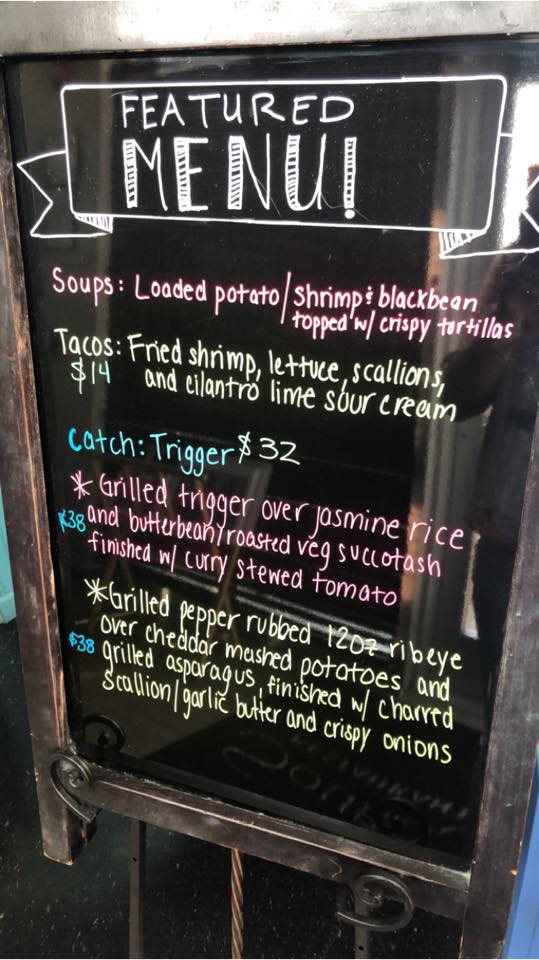 FEATURED
MENU!
Soups: Loaded potato/Shrimp & blackbean
topped w/ crispy tortillas
Tacos: Fried shrimp, lettuce, scallions,
$14 and cilantro lime sour cream
Catch: Trigger $32
* Grilled trigger over jasmine rice
$38 and butterbean/roasted veg succotash
finished w/ curry stewed tomato
*Grilled pepper rubbed 12oz ribeye
over cheddar mashed potatoes and
$38 grilled asparagus, finished w/ charred
Scallion/garlic butter and crispy onions